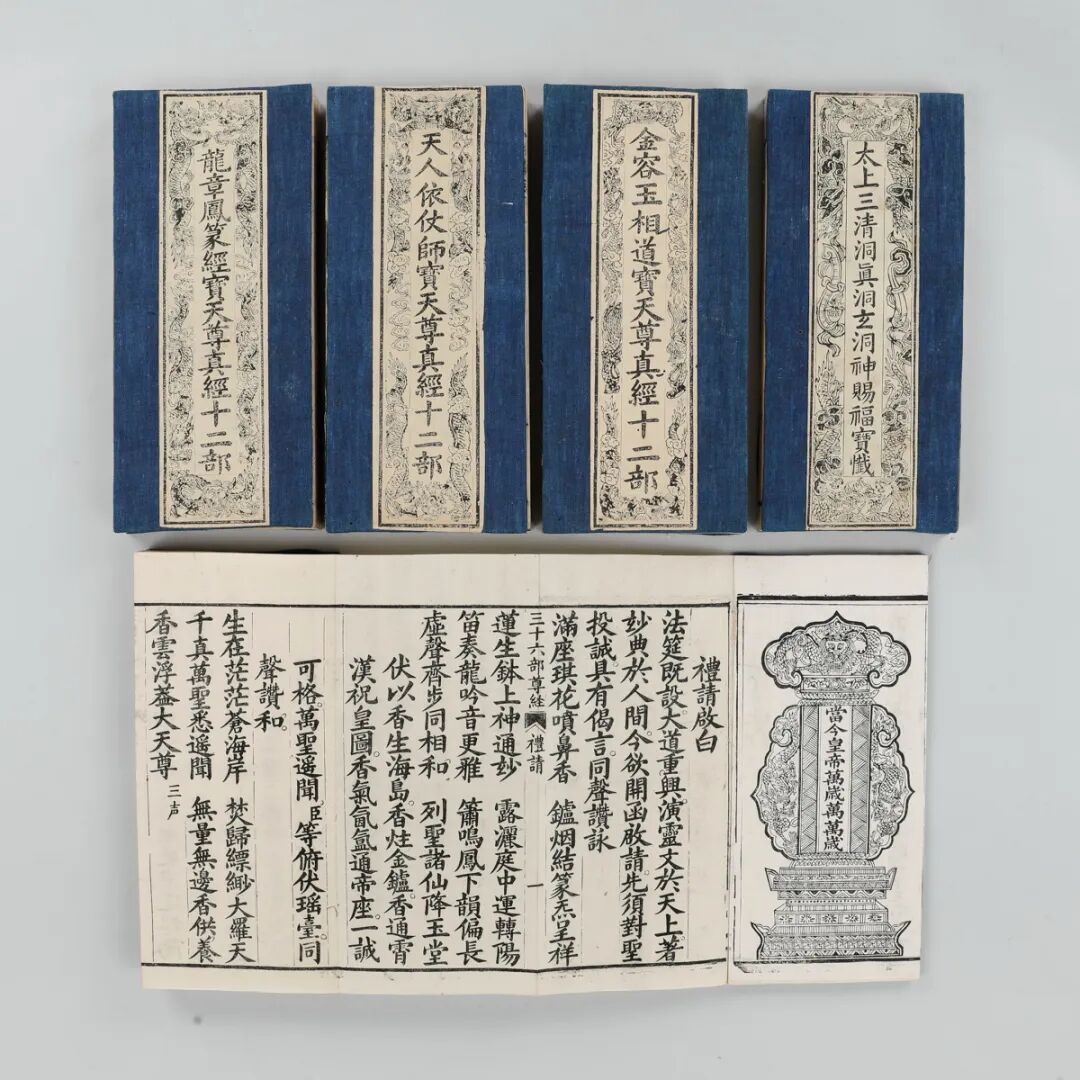 太上三清洞眞洞玄洞神賜福寶懺
金容玉相道寶天尊真經十二部
天人依仗師寶天尊真經十二部
龍章鳳篆經寶天尊真經十二部
當今皇帝萬歲萬萬歲
禮請啟白
法筵既設大道重興演靈文於天上著
妙典於人間。今欲開函啟請。先須對聖
投誠。具有偈言。同聲讚詠
滿座琪花噴鼻香　鑪烟結篆炁呈祥
三十六部尊經　禮請　一
蓮生鉢上神通妙　露灑庭中運轉陽
笛奏龍吟音更雅　簫鳴鳳下韻偏長
虛聲齊步同相和　列聖諸仙降玉堂
伏以香生海島。香炷金鑪。香通霄
漢祝皇圖。香氣氤氳通帝座。一誠
可格。萬聖遥聞。臣等俯伏瑶臺。同
聲讚和。
生在茫茫蒼海岸　焚歸縹緲大羅天
千真萬聖悉遥聞　無量無邊香供養
香雲浮蓋大天尊　三声